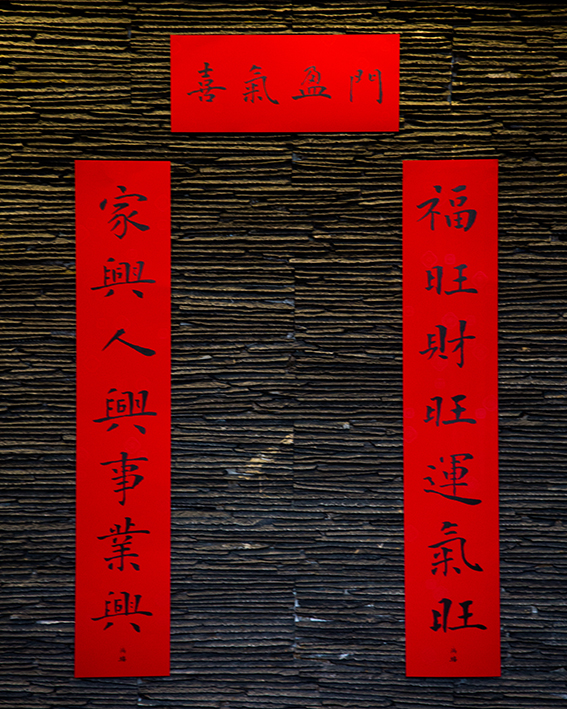 喜氣盈門
福旺財旺運氣旺
家興人興事業興